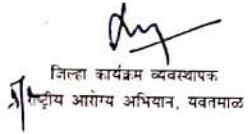 जिल्हा कार्यक्रम व्यवस्थापक
राष्ट्रीय आरोग्य अभियान, यवतमाळ